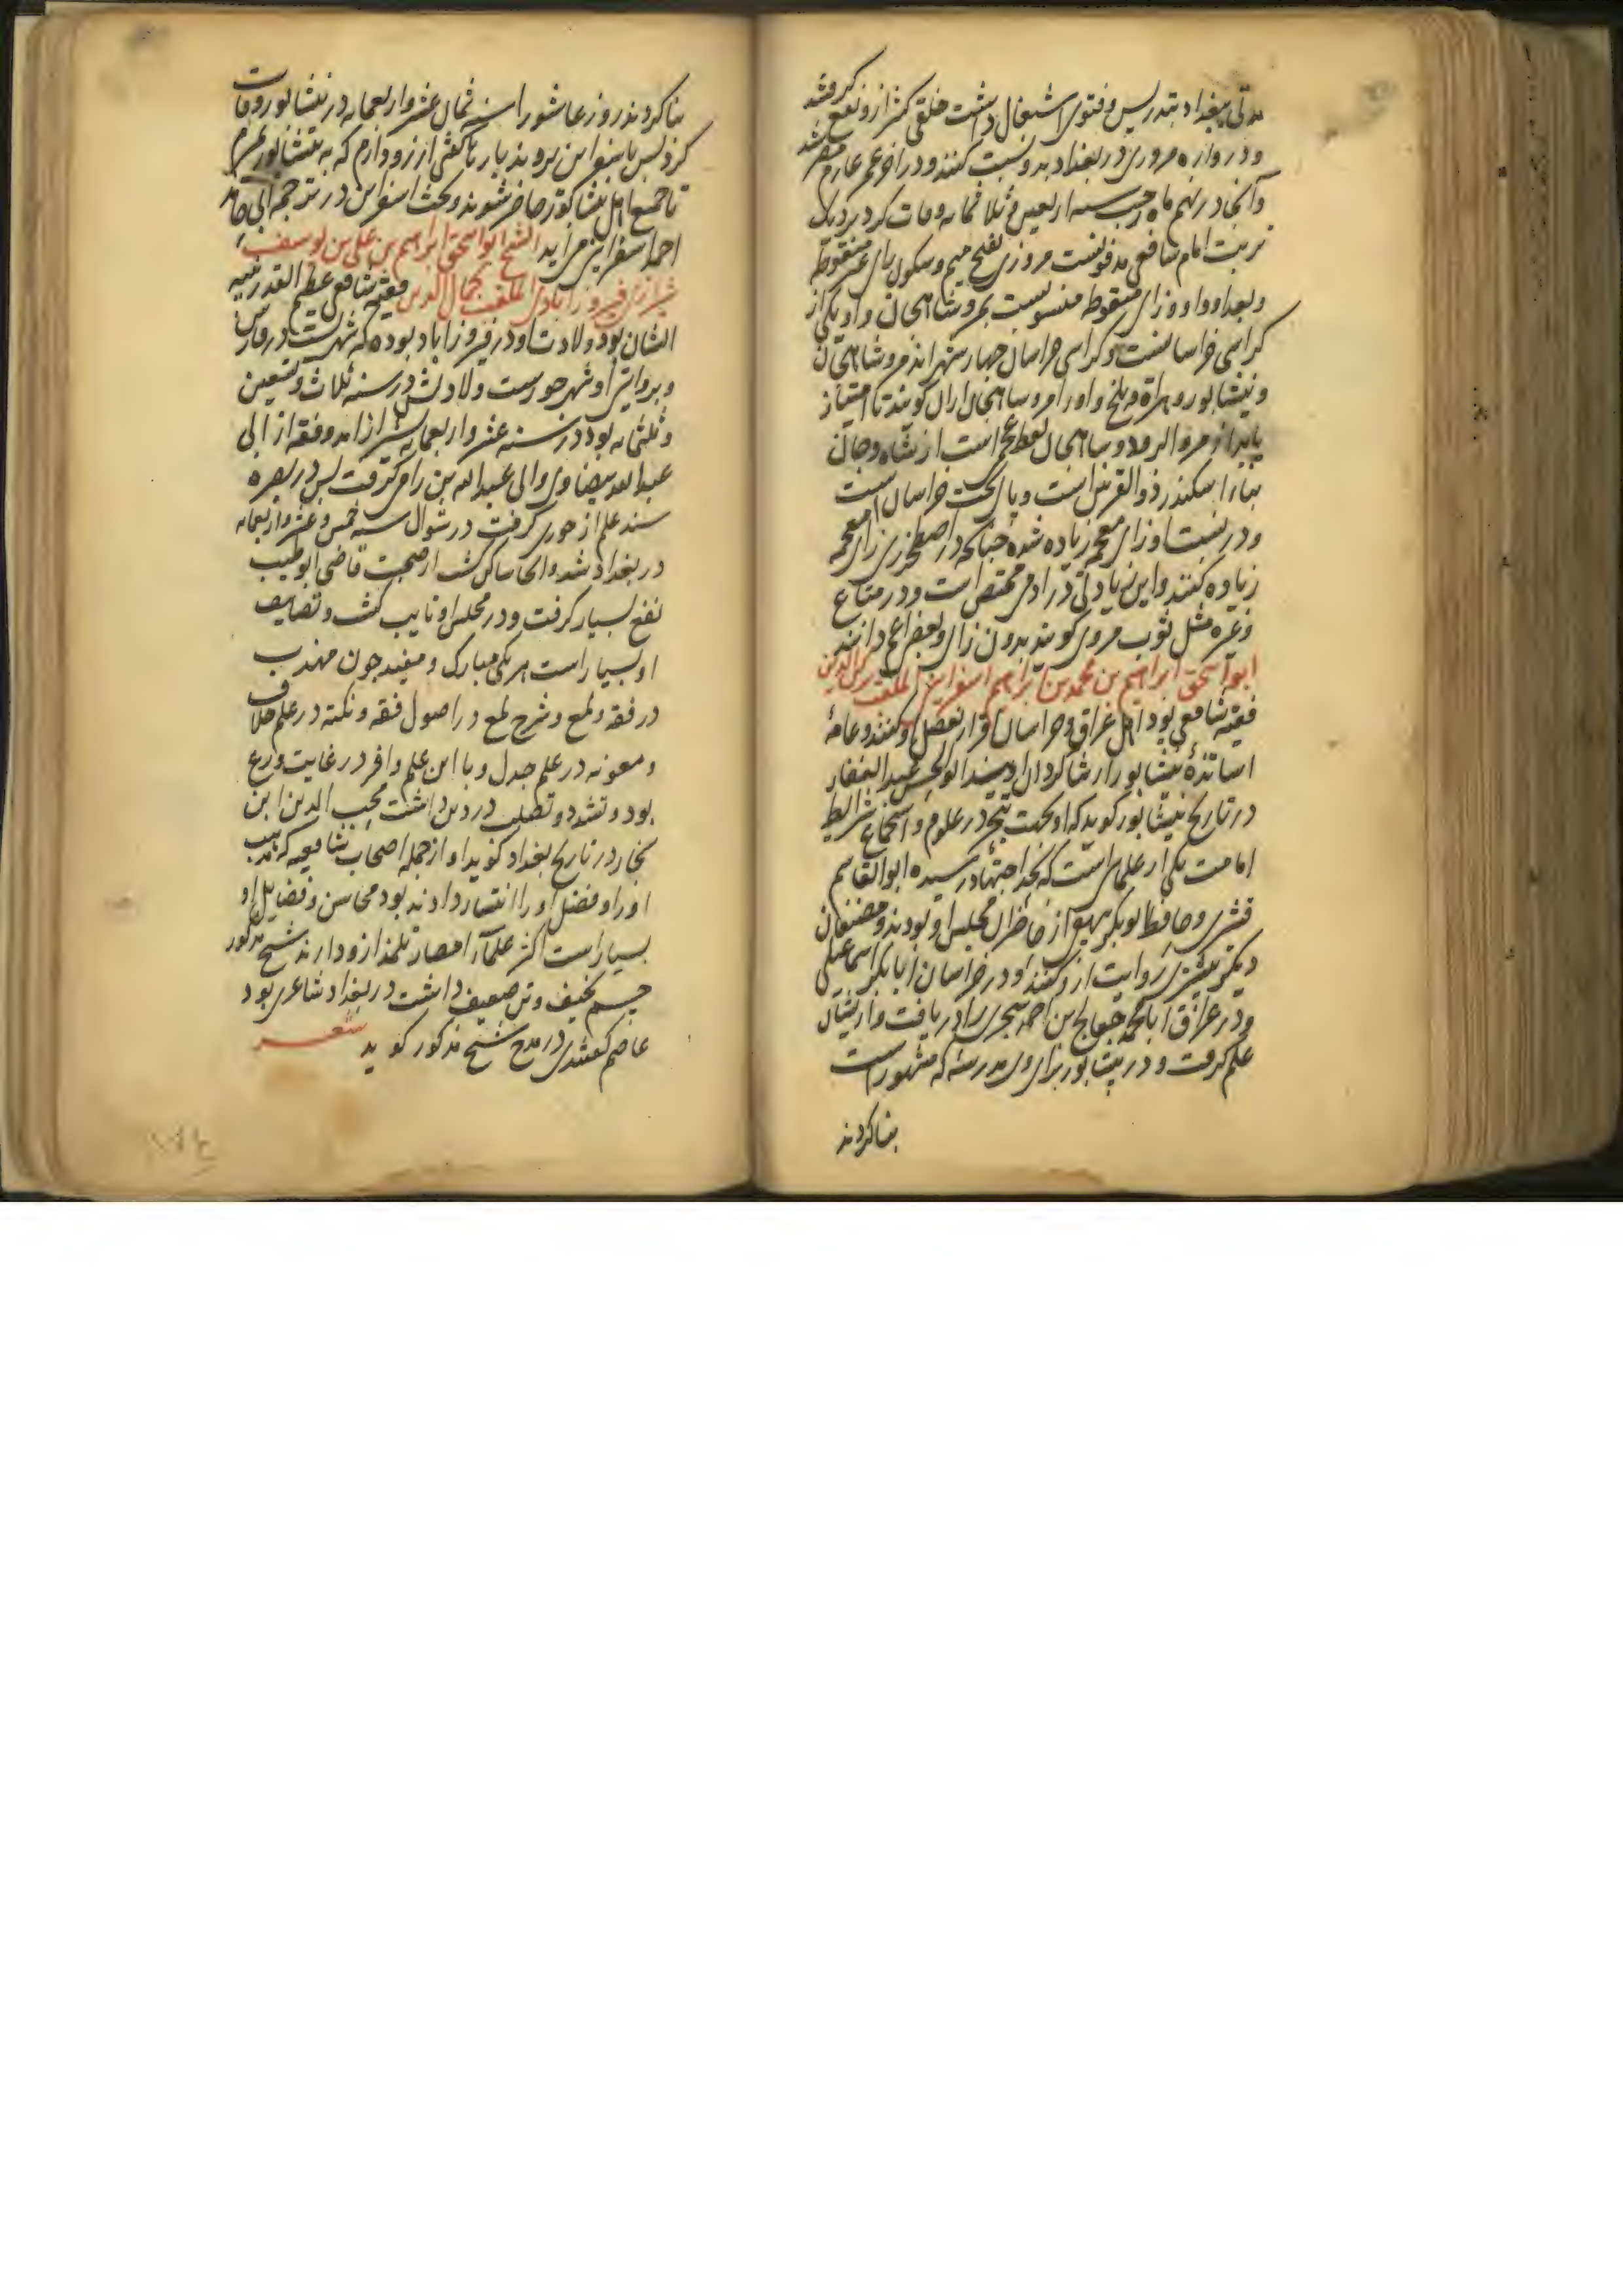 مدتی ببغداد بتدریس و فتوی اشتغال داشت خلقی کثیر ازو نفع گرفتند
و دروازه مروزی در بغداد بدو نسبت کنند و در اخر عمر عازم مصر شد
و آنجا در نهم ماه رجب سنه اربعین و ثلاثمایه وفات کرد نزدیک
تربت امام شافعی مدفونست مروزی بفتح میم و سکون رای غیر منقوطه
و بعد او واو و زای منقوطه منسوبست بمرو شاهجان و او یکی از
کراسی خراسانست و کراسی خراسان چهار شهراند مرو شاهجان
و نیشابور و هراة و بلخ و او را مرو شاهجان ازان گویند تا امتیاز
یابد از مرو الرود و شاهجان لفظ عجم است از شاه و جان
بنا را سکندر ذو القرنین است و پای تخت خراسان است
و در نسبت او زای معجمه زیاده شده چنانکه در اصطخرزی زای معجمه
زیاده کنند و این زیادتی در ادمی مختص است و در متاع
و غیره مثل ثوب مروی گویند بدون زای و بعضی اعم دانند
ابو اسحق ابراهیم بن محمد بن ابراهیم اسفراینی الملقب برکن الدین
فقیه شافعی بود اهل عراق و خراسان اقرار بفضل او کنند و عامهٔ
اساتذهٔ نیشابور را شاگرد او دانند ابو الحسن عبد الغفار
در تاریخ نیشابور گوید که او بجهت تبحر در علوم و استجماع شرایط
امامت یکی از علمای است که بحد اجتهاد رسیده ابو القاسم
قشیری و حافظ ابو بکر بیهقی از حاضران مجلس او بودند و مصنفان
دیگر بیشتری روایت ازو کنند او در خراسان ابا بکر اسماعیلی
و در عراق ابا محمد دعلج بن احمد سجزی را دریافت و از ایشان
علم گرفت و در نیشابور برای وی مدرسهٔ که مشهور است
بنا کردند
بنا کردند روز عاشورا سنه ثمان عشر و اربعمایه در نیشابور وفات
کرد پس باسفراین بردند بارها گفتی ارزو دارم که به نیشابور میرم
تا جمیع اهل نیشابور حاضر شوند و بحث اسفراین در ترجمه ابی حامد
احمد اسفراینی می اید الشیخ ابو اسحق ابراهیم بن علی بن یوسف
شیرازی فیروزابادی الملقب بجمال الدین فقیه شافعی عظیم القدر نبیه
الشان بود ولادت او در فیروزاباد بوده که شهریست در فارس
و بروایتی او شهر جورست ولادتش در سنه ثلاث و تسعین
و ثلثمایه بود در سنه عشر و اربعمایه بشیراز امد و فقه از ابی
عبد الله بیضاوی و ابی عبد الله بن رامین گرفت پس در بصره
سند علم از جوری گرفت در شوال سنه خمس و عشر و اربعمایه
در بغداد شد و انجا ساکن گشت از صحبت قاضی ابو طیب
نفع بسیار گرفت و در مجلس او نایب گشت و تصانیف
او بسیار است هر یکی مبارک و مفید چون مهذب
در فقه و لمع و شرح لمع در اصول فقه و نکته در علم خلاف
و معونه در علم جدل و با این علم وافر در غایت ورع
بود و تشدد و تصلب در دین داشت محب الدین ابن
نجار در تاریخ بغداد گوید او از جمله اصحاب شافعیه که مذهب
او را و فضل او را انتشار دادند بود محاسن و فضایل او
بسیار است اکثر علمآء امصار تلمذ ازو دارند شیخ مذکور
جسم نحیف و تن ضعیف داشت در بغداد شاعری بود
عاصم گفتندی در مدح شیخ مذکور گوید شعر